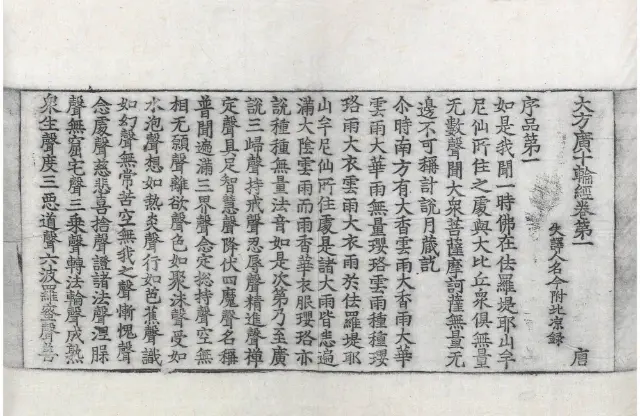 大方廣十輪經卷第一 唐
失譯人名今附北凉錄
序品第一
如是我聞一時佛在佉羅堤耶山牟
尼仙所住之處與大比丘衆俱無量
无數聲聞大衆菩薩摩訶薩無量无
邊不可稱計說月藏訖
尒時南方有大香雲雨大香雨大華
雲雨大華雨無量瓔珞雲雨種種瓔
珞雨大衣雲雨大衣雨於佉羅堤耶
山牟尼仙所住處是諸大雨皆悉遍
滿大陰雲雨而雨香華衣服瓔珞亦
說種種無量法音如是次第乃至廣
說三歸聲持戒聲忍辱聲精進聲禪
定聲具足智慧聲降伏四魔聲名稱
普聞遍滿三界聲念定揔持聲空無
相无願聲離欲聲色如聚沫聲受如
水泡聲想如熱炎聲行如芭蕉聲識
如幻聲無常苦空無我之聲慚愧聲
念處聲慈悲喜捨聲證諸法聲涅槃
聲無窟宅聲三乘聲轉法輪聲成熟
衆生聲度三惡道聲六波羅蜜聲善